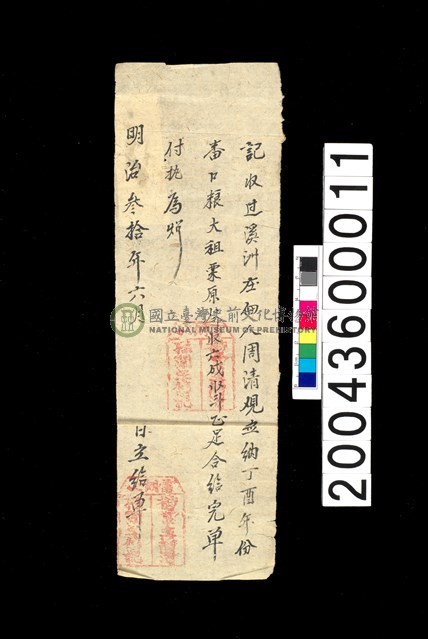 記收过溪洲庄佃人周清觀並納丁酉年份
番口粮大租粟原 收六成 正足合給完單
付执為炤
明治叁拾年六月 日立給單
國立臺灣史前文化博物館
NATIONAL MUSEUM OF PREHISTORY
2004360001 1